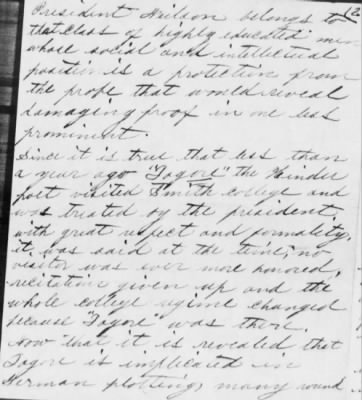 12
President Neilson belongs to
that class of highly educated men
whose social and intellectual
position is a protection from
the probe that would reveal
damaging proof in one less
prominent.
Since it is true that less than
a year ago "Tagore" the Hindu
poet visited Smith College and
was treated by the president
with great respect and formality,
it was said at the time, no
visitor was ever more honored,
recitation given up and the
whole college regime changed
because "Tagore" was there.
Now that it is revealed that
Tagore is implicated in
German plotting, many round